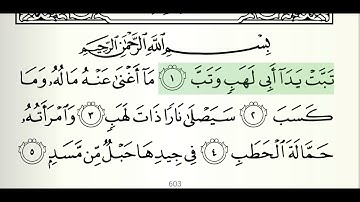 بِسْمِ ٱللَّهِ ٱلرَّحْمَٰنِ ٱلرَّحِيمِ
تَبَّتْ يَدَآ أَبِى لَهَبٍ وَتَبَّ ١ مَآ أَغْنَىٰ عَنْهُ مَالُهُۥ وَمَا
كَسَبَ ٢ سَيَصْلَىٰ نَارًا ذَاتَ لَهَبٍ ٣ وَٱمْرَأَتُهُۥ
حَمَّالَةَ ٱلْحَطَبِ ٤ فِى جِيدِهَا حَبْلٌ مِّن مَّسَدٍۭ ٥
603